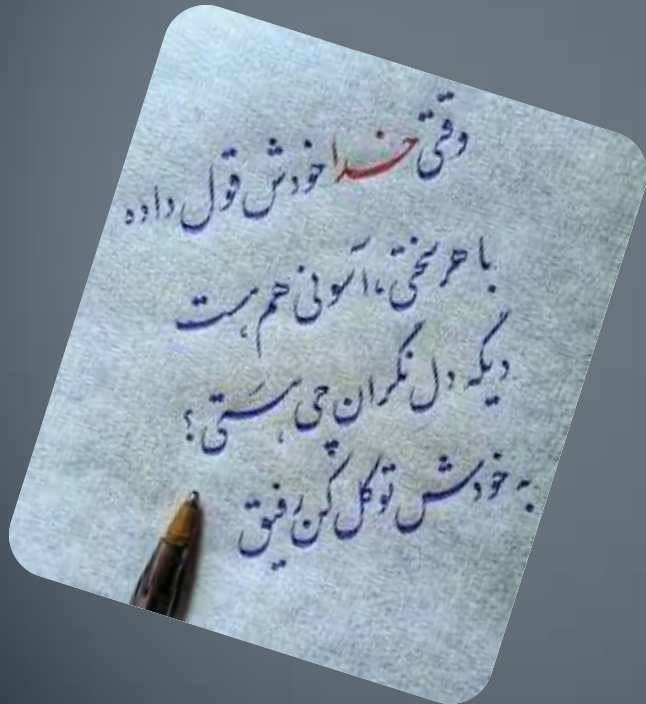 وقتی خدا خودش قول داده
با هر سختی، آسونی هم هست
دیگه دل نگران چی هستی؟
به خودش توکل کن رفیق